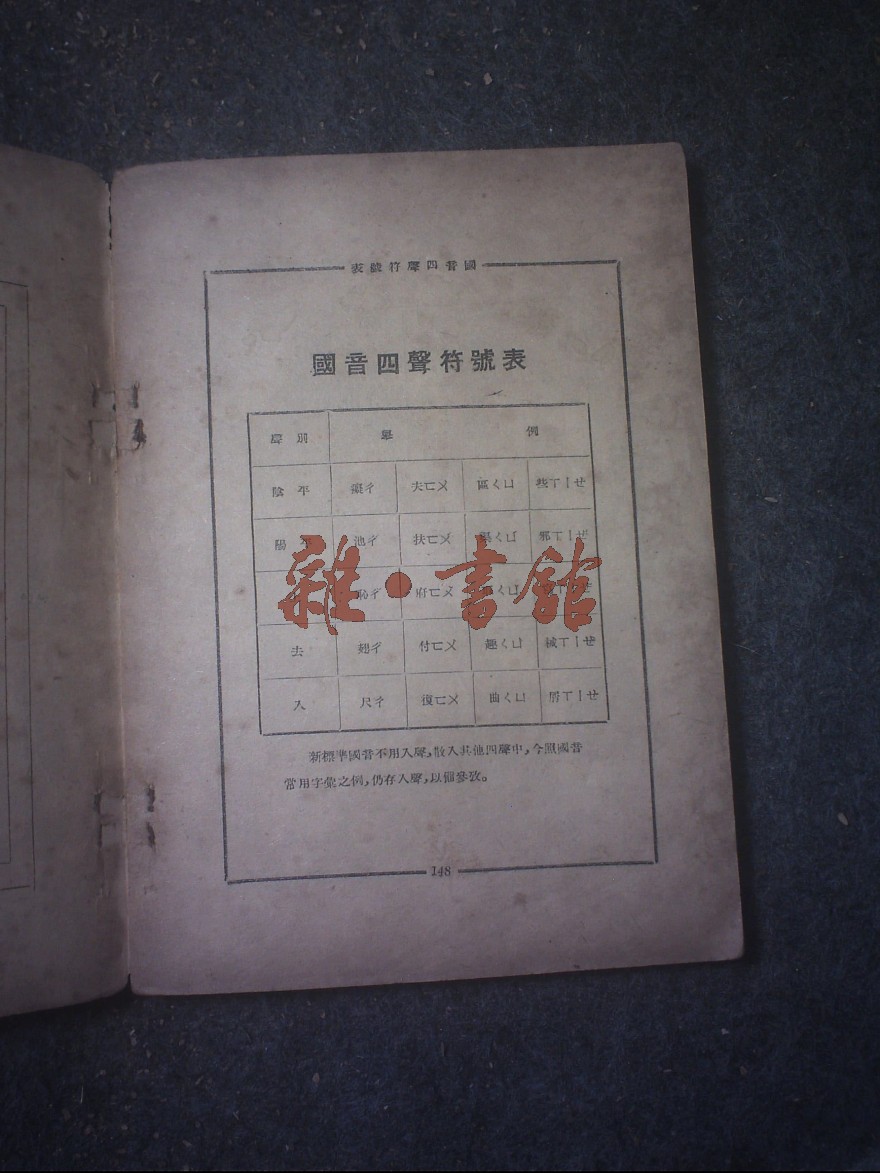 國音四聲符號表
國音四聲符號表
聲別 舉例
陰平 癡ㄔ 夫ㄈㄨ 區ㄑㄩ 些ㄒㄧㄝ
陽平 池ㄔ 扶ㄈㄨ ㄑㄩ 邪ㄒㄧㄝ
恥ㄔ 府ㄈㄨ ㄑㄩ ㄒㄧㄝ
去 翅ㄔ 付ㄈㄨ 趣ㄑㄩ 械ㄒㄧㄝ
入 尺ㄔ 復ㄈㄨ 曲ㄑㄩ 屑ㄒㄧㄝ
雜·書館
新標準國音不用入聲,散入其他四聲中,今照國音
常用字彙之例,仍存入聲,以備參攷。
148